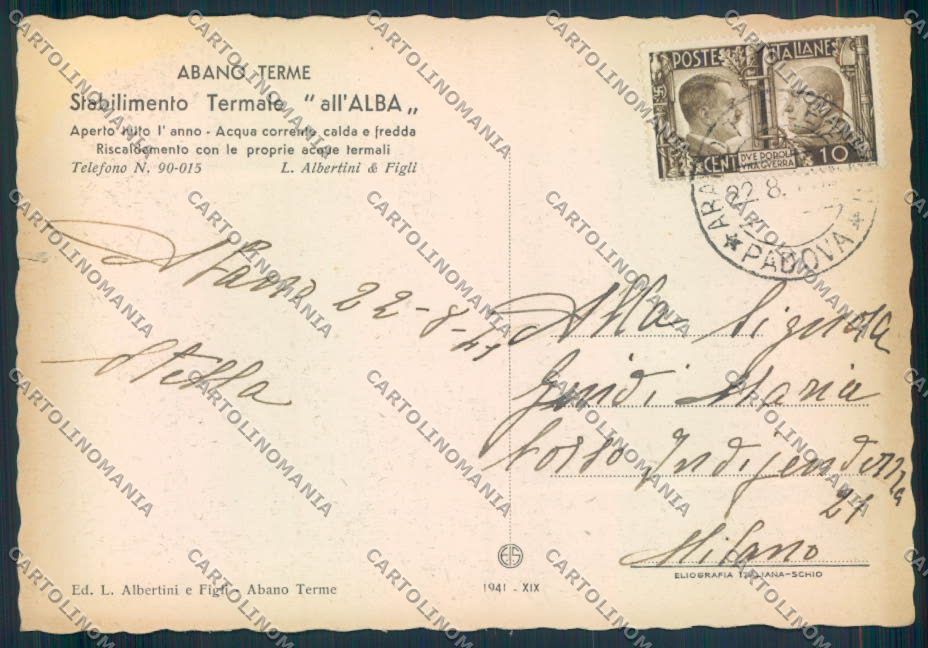 ABANO TERME
Stabilimento Termale "all'ALBA„
Aperto tutto l'anno - Acqua corrente calda e fredda
Riscaldamento con le proprie acque termali
Telefono N. 90-015 L. Albertini & Figli
POSTE ITALIANE
CENT 10
DVE POPOLI
VNA GVERRA
22.8.
PADOVA
Abano 22-8-41
Stella
Alla Signora
Maria
Corso Indipendenza
21
Milano
ELIOGRAFIA ITALIANA-SCHIO
Ed. L. Albertini e Figli - Abano Terme
1941 - XIX
CARTOLINOMANIA